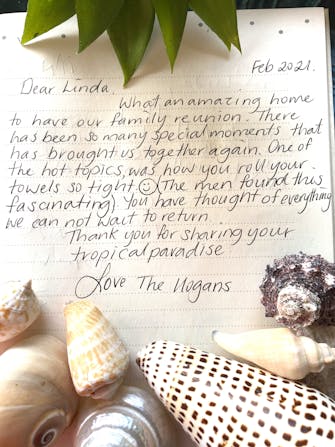 Feb 2021.
Dear Linda,
What an amazing home
to have our family reunion. There
has been so many special moments that
has brought us together again. One of
the hot topics, was how you roll your
towels so tight ☺ (The men found this
fascinating) You have thought of everything
we can not wait to return.
Thank you for sharing your
tropical paradise
Love The Hogans